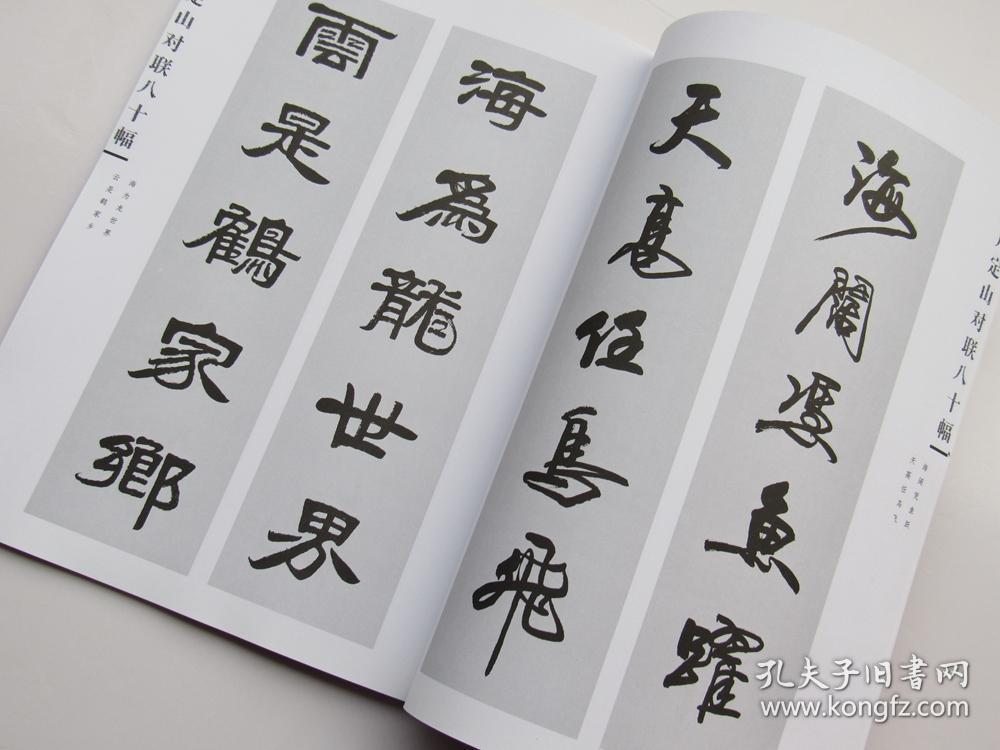 定山对联八十幅
海阔凭鱼跃
天高任鸟飞
海闊憑魚躍
天高任鳥飛
海爲龍世界
雲是鶴家鄉
定山对联八十幅
海为龙世界
云是鹤家乡
孔夫子旧書网
www.kongfz.com